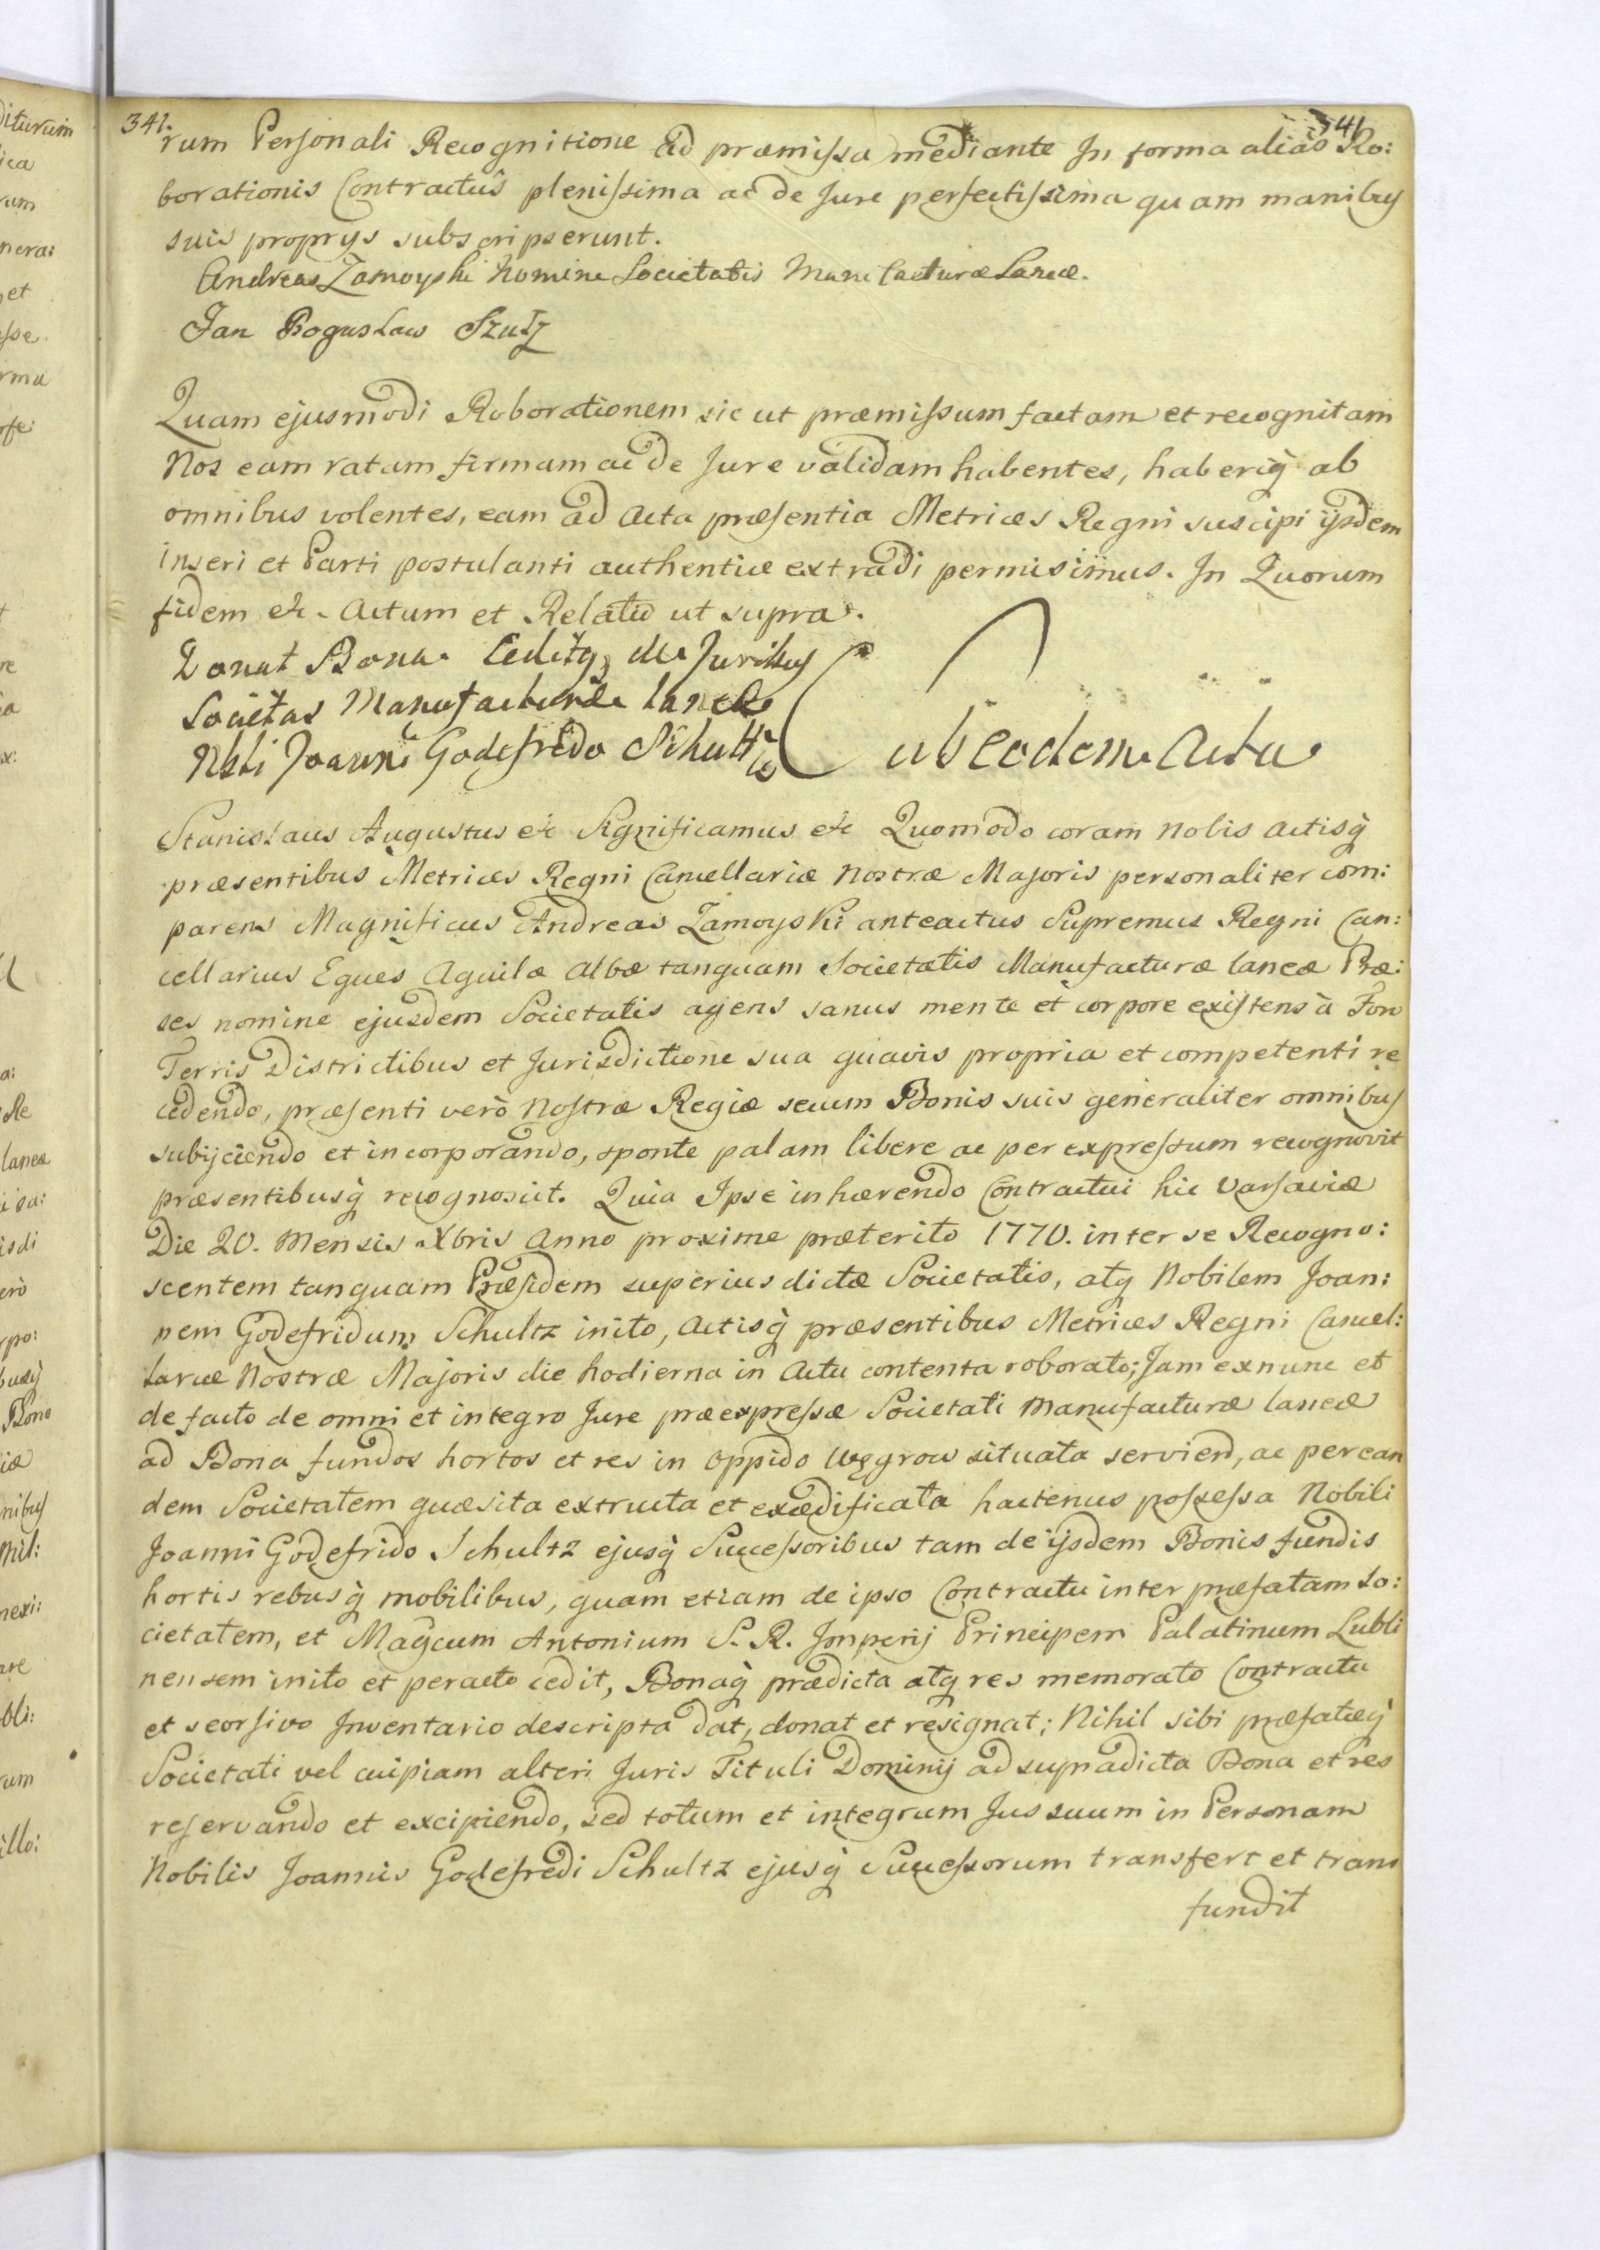 341. 341
rum Personali Recognitione ad præmissa mediante In forma alias Ro:
borationis Contractus plenissima ac de Jure perfectissima quam manibus
suis proprys subscripserunt.
Andreas Zamoyski Nomine Societatis Manufacturæ Laneæ.
Jan Bogusław Szulz
Quam ejusmodi Roborationem sic ut præmissum factam et recognitam
Nos eam ratam firmam ac de Jure validam habentes, haberiq̀ ab
omnibus volentes, eam ad Acta præsentia Metrices Regni suscipi ijsdem
inseri et Parti postulanti authentice extradi permisimus. In Quorum
fidem etc. Actum et Relatio ut supra.
Donat Bona Ceditq de Juribus
Societas Manufacturæ laneæ
Nbli Joanni Godefrido Schultz
ab eodem Actu
Stanislaus Augustus etc Significamus etc Quomodo coram Nobis actisq̀
præsentibus Metrices Regni Cancellariæ Nostræ Majoris personaliter com:
parens Magnificus Andreas Zamoyski anteactus Supremus Regni Can:
cellarius Eques Aquilæ Albæ tanquam Societatis Manufacturæ laneæ Præ:
ses nomine ejusdem Societatis agens sanus mente et corpore existens à Foro
Terris Districtibus et Jurisdictione sua quavis propria et competenti re
cedendo, præsenti verò Nostræ Regiæ secum Bonis suis generaliter omnibus
subijciendo et incorporando, sponte palam libere ac per expressum recognovit
præsentibusq̀ recognoscit. Quia Ipse inhærendo Contractui hic Varsaviæ
Die 20. Mensis Xbris Anno proxime præterito 1770. inter se Recogno:
scentem tanquam Præsidem superius dictæ Societatis, atq Nobilem Joan:
nem Godefridum Schultz inito, Actisq̀ præsentibus Metrices Regni Cancel:
lariæ Nostræ Majoris die hodierna in Actu contenta roborato; Jam exnunc et
de facto de omni et integro Jure præexpressæ Societati Manufacturæ laneæ
ad Bona fundos hortos et res in Oppido Węgrow situata servien, ac per ean
dem Societatem quæsita extructa et exædificata hactenus possessa Nobili
Joanni Godefrido Schultz ejusq̀ Successoribus tam de ijsdem Bonis fundis
hortis rebusq̀ mobilibus, quam etiam de ipso Contractu inter præfatam So:
cietatem, et Magcum Antonium S. R. Imperij Principem Palatinum Lubli
nensem inito et peracto cedit, Bonaq̀ prædicta atq res memorato Contractu
et seorsivo Inventario descripta dat, donat et resignat; Nihil sibi præfatæq̀
Societati vel cuipiam alteri Juris Tituli Dominij ad supradicta Bona et res
reservando et excipiendo, sed totum et integrum Jus suum in Personam
Nobilis Joannis Godefredi Schultz ejusq̀ Successorum transfert et trans
fundit